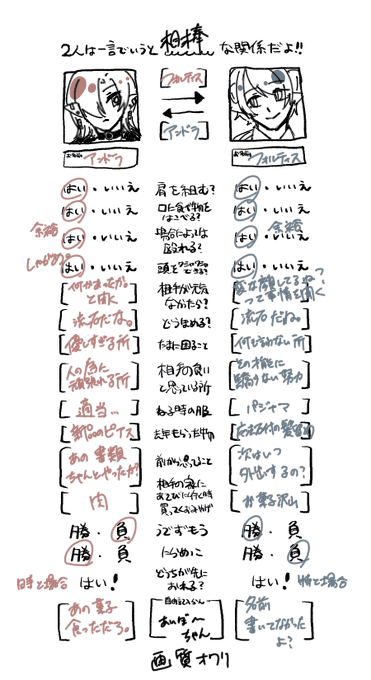 2人は一言でいうと 相棒 な関係だよ!!
フォルティス
アンドラ
アンドラ フォルティス
はい・いいえ 肩を組む? はい・いいえ
はい・いいえ 口に食べ物をはこべる? はい・いいえ
余裕 はい・いいえ 場合によっては殴れる? はい・いいえ 余裕
はい・いいえ 頭を できる? はい・いいえ
何かあったか。と聞く 相手が元気なかったら? 変な顔してるねって事情を聞く
流石だな。 どうほめる? 流石だね。
優しすぎる所 たまに困ること 何もない所
人の為に頑張れる所 相手の良いと思っている所 その才能に驕らない努力
適当… ねる時の服 パジャマ
新品のピアス 去年もらった物
あの書類ちゃんとやったか? 前から思ってること 次はいつ外出するの?
肉 相手の家にあそびに行く時買ってくおみやげ お菓子沢山
勝・負 うでずもう 勝・負
勝・負 にらめっこ 勝・負
時と場合 はい! どっちが先におれる? はい! 時と場合
あの菓子食っただろ。 あいぼ〜ちゃん 名前書いてなかったよ?
画質オワリ